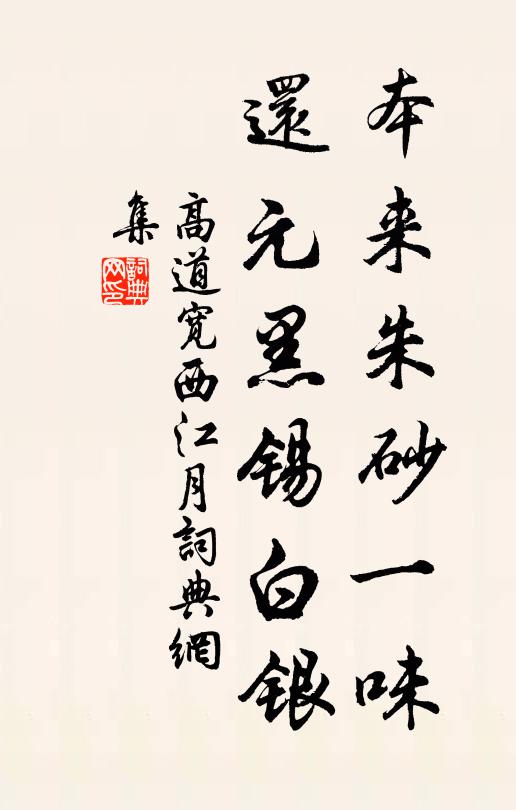 本来朱砂一味
還元黑锡白銀
高道寬西江月詞典網
集
詞典
网印